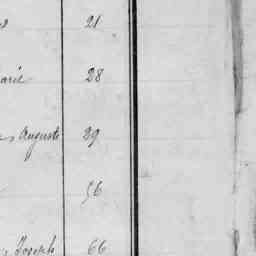 21
28
Auguste 29
56
Joseph 66